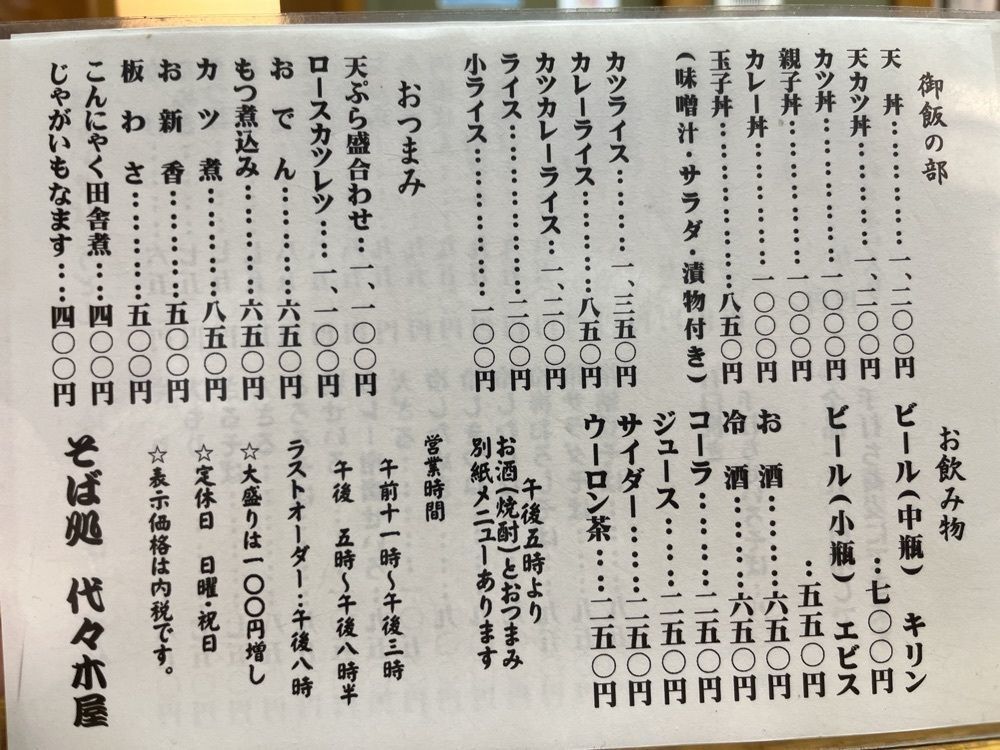 御飯の部
天丼…………一、二〇〇円
天カツ丼…………一、二〇〇円
カツ丼…………一〇〇〇円
親子丼…………一〇〇〇円
カレー丼…………一〇〇〇円
玉子丼…………八五〇円
(味噌汁・サラダ・漬物付き)
カツライス…………一、三五〇円
カレーライス…………八五〇円
カツカレーライス…一、二〇〇円
ライス…………二〇〇円
小ライス…………一〇〇円
おつまみ
天ぷら盛合わせ…一、一〇〇円
ロースカツレツ…一、一〇〇円
おでん…………六五〇円
もつ煮込み…………六五〇円
カツ煮…………八五〇円
お新香…………五〇〇円
板わさ…………五〇〇円
こんにゃく田舎煮…四〇〇円
じゃがいもなます…四〇〇円
お飲み物
ビール(中瓶) キリン
…七〇〇円
ビール(小瓶) エビス
…五五〇円
お酒……六五〇円
冷酒……六五〇円
コーラ……二五〇円
ジュース……二五〇円
サイダー……二五〇円
ウーロン茶……二五〇円
午後五時より
お酒(焼酎)とおつまみ
別紙メニューあります
営業時間
午前十一時～午後三時
午後 五時～午後八時半
ラストオーダー…午後八時
☆大盛りは一〇〇円増し
☆定休日 日曜・祝日
☆表示価格は内税です。
そば処 代々木屋